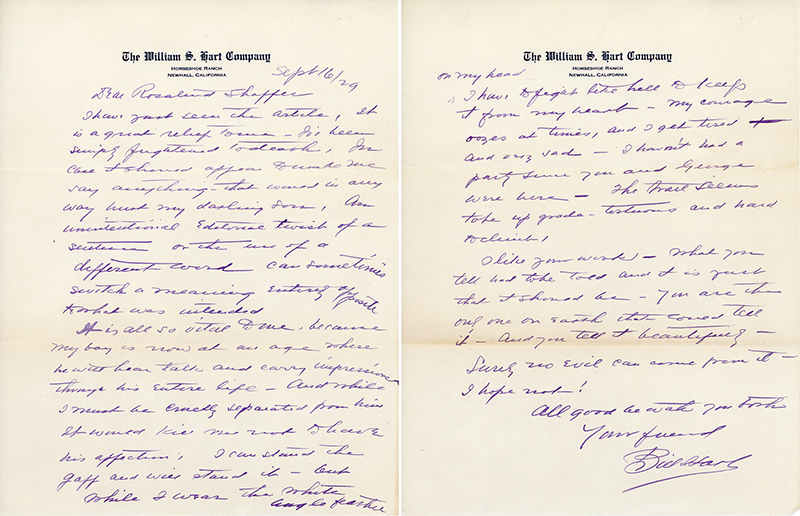 The William S. Hart Company
HORSESHOE RANCH
NEWHALL, CALIFORNIA
Sept 16/29
Dear Rosalind Shaffer
I have just seen the article, It
is a great relief to me – I've been
simply frightened to death, In
case it should appear to make me
say anything that would in any
way hurt my darling son, An
unintentional Editorial twist of a
sentence or the use of a
different word can sometimes
switch a meaning entirely opposite
to what was intended
It is all so vital to me, because
my boy is now at an age where
he will hear talk and carry impressions
through his entire life – And while
I must be cruelly separated from him
It would kill me not to have
his affection! I can stand the
gaff and will stand it – but
while I wear the white
anglo feather
The William S. Hart Company
HORSESHOE RANCH
NEWHALL, CALIFORNIA
on my head
I have to fight like hell to keep
it from my heart – my courage
oozes at times, and I get tired
and very sad – I haven't had a
party since you and George
were here – The trail seems
to be up grade – tortuous and hard
to climb!
I like your work – What you
tell had to be told and it is just
that it should be – You are the
only one on earth that could tell
it – And you tell it beautifully –
Surely no evil can come from it –
I hope not!
All good be with you both
Your friend
Bill Hart